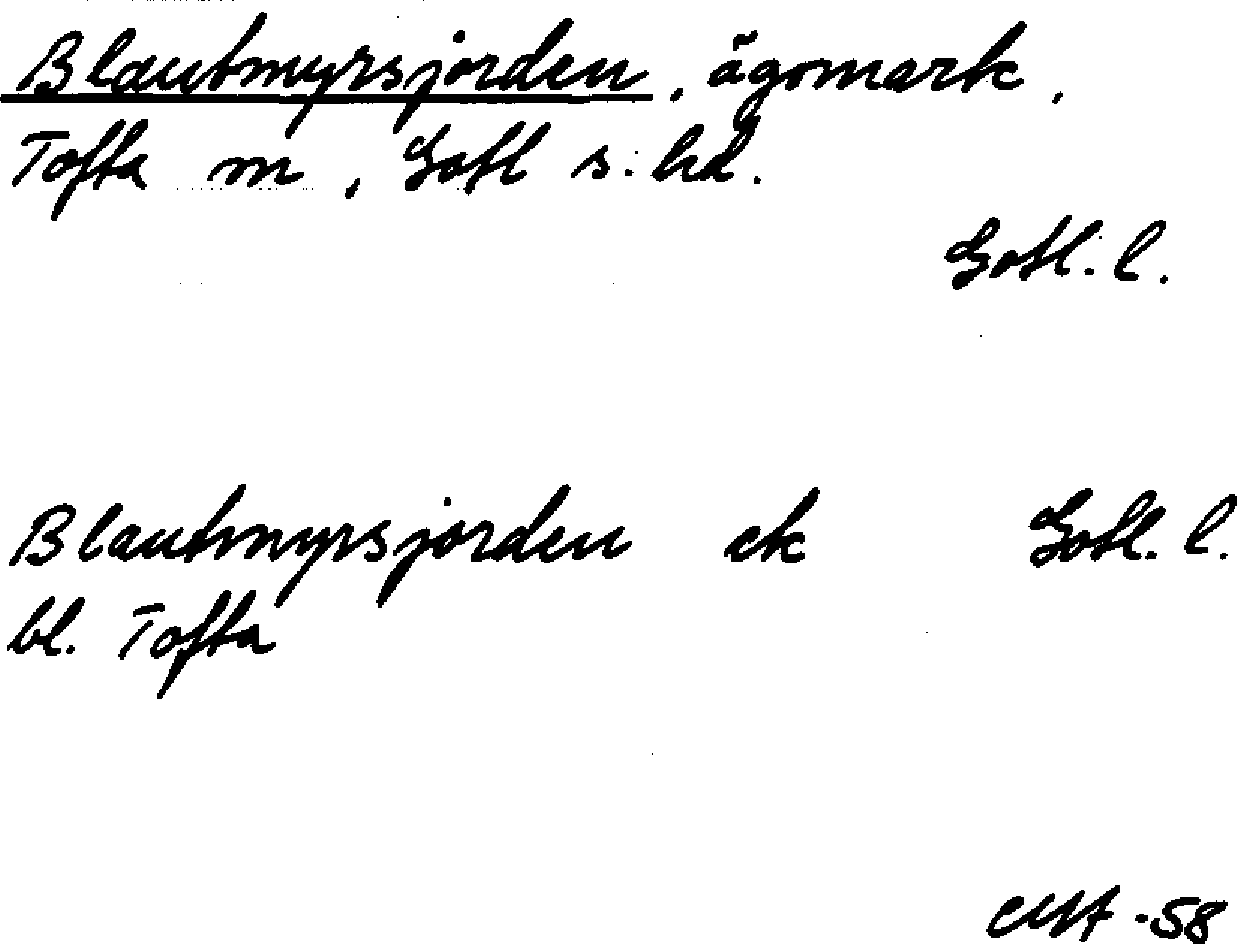 Blautmyrsjorden, ägomark,
Tofta sn, Gotl s. hd.
Gotl. l.
Blautmyrsjorden ek Gotl. l.
bl. Tofta
-58